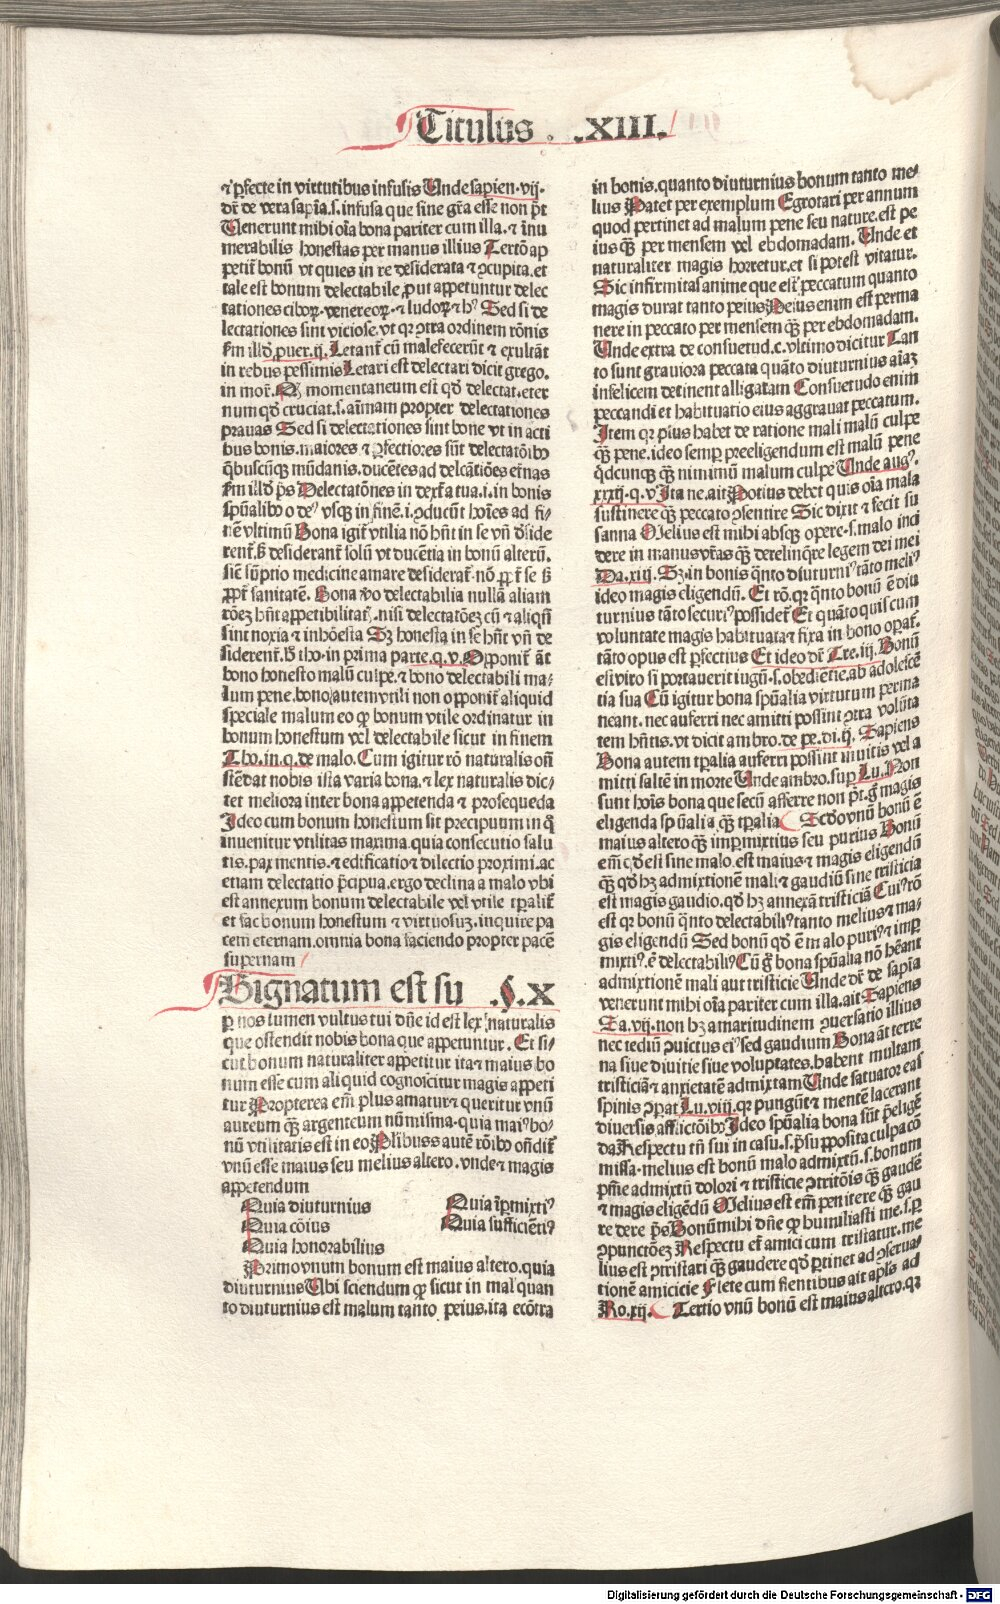 Titulus .XIII.
⁊ ꝑfecte in virtutibus infusis Unde sapien. vij.
dr̄ de vera sapīa. s. infusa que sine gr̄a esse non pōt
Uenerunt mihi oīa bona pariter cum illa. ⁊ īnu
merabilis honestas per manus illius Tertō ap
petit̄ bonū vt quies in re desiderata ⁊ ɔcupita. et
tale est bonum delectabile, put appetuntur delec
tationes ciboꝝ. venereoꝝ. ⁊ ludoꝝ ⁊ hꝰ Sed si de
lectationes sint viciose. vt qꝛ ɔtra ordinem rōnis
fm illd̓ ꝓuer. ij. Letant̄ cū malefecerūt ⁊ exultāt
in rebus pessimis Letari est delectari dicit grego.
in mor. Qꝫ momentaneum est qd̓ delectat. eter
num qd̓ cruciat. s. aīmam propter delectationes
prauas Sed si delectationes sint bone vt in acti
bus bonis. maiores ⁊ ꝑfectiores sūt delectatōib᷒
q̄buscūqꝫ mūdanis. ducētes ad delcātiōes et̄nas
fm illd̓ ps̄ Delectatōnes in dext̄a tua. i. in bonis
spūalib᷒ o de᷒ vsqꝫ in finē. i. ꝓducūt hoīes ad fi⸗
nē vltimū Bona igit̄ vtilia nō hn̄t in se vn̄ d̓side
rent̄. ß desiderant̄ solū vt ducētia in bonū alterū.
sic̄ sūptio medicine amare desiderat̄. nō ꝓpt̄ se ß
ꝓpt̄ sanitatē. Bona ꝟo delectabilia nullā aliam
rōeꝫ hn̄t appetibilitat̄. nisi delectatōeꝫ cū ⁊ aliqn̄
sint noxia ⁊ inhōestia Sꝫ honesta in se hn̄t vn̄ de
siderent̄. ß tho. in prima parte. q. v. Opponit̄ āt
bono honesto malū culpe. ⁊ bono delectabili ma⸗
lum pene. bono autem vtili non opponit̄ aliquid
speciale malum eo ꝙ bonum vtile ordinatur in
bonum honestum vel delectabile sicut in finem
Tho. in. q. de malo. Cum igitur rō naturalis on̄
stēdat nobis ista varia bona. ⁊ lex naturalis dic⸗
tet meliora inter bona appetenda ⁊ prosequeda
Ideo cum bonum honestum sit precipuum in q̄
inuenitur vtilitas maxima. quia consecutio salu
tis. pax mentis. ⁊ edificatio ⁊ dilectio proximi. ac
etiam delectatio p̄cipua. ergo declina a malo vbi
est annexum bonum delectabile vel vtile tꝑalit̄
et fac bonum honestum ⁊ virtuosuꝫ. inquire pa
cem eternam. omnia bona faciendo propter pacē
supernam
Signatum est su .§. X
ꝑ nos lumen vultus tui dn̄e id est lex naturalis
que ostendit nobis bona que appetuntur. Et si⸗
cut bonum naturaliter appetitur ita ⁊ maius bo
num esse cum aliquid cognoscitur magis appeti
tur Propterea em̄ plus amatur ⁊ queritur vnū
aureum qꝫ argenteum nūmisma. quia maiꝰ bo⸗
nū vtilitatis est in eo Plibuss autē rōib᷒ on̄dit̄
vnū esse maius seu melius altero. vnde ⁊ magis
appetendum
Quia diuturnius
Quia cōius
Quia honorabilius
Quia īꝑmixtiꝰ
Quia sufficiētiꝰ
Primo vnum bonum est maius altero. quia
diuturnius Ubi sciendum ꝙ sicut in mal quan
to diuturnius est malum tanto peius. ita ecōtra
in bonis. quanto diuturnius bonum tanto me⸗
lius Patet per exemplum Egrotari per annum
quod pertinet ad malum pene seu nature. est pe
ius qꝫ per mensem vel ebdomadam. Unde et
naturaliter magis horretur. et si potest vitatur.
Sic infirmitas anime que est peccatum quanto
magis durat tanto peius Peius enim est perma
nere in peccato per mensem qꝫ per ebdomadam.
Unde extra de consuetud. c. vltimo dicitur Tan
to sunt grauiora peccata quāto diuturnius aīaꝫ
infelicem detinent alligatam Consuetudo enim
peccandi et habituatio eius aggrauat peccatum.
Item qꝛ pl̓us habet de ratione mali malū culpe
qꝫ pene. ideo semꝑ preeligendum est malū pene
q̄dcunqꝫ qꝫ nimimū malum culpe Unde augꝰ.
xxxij. q. v Ita ne. ait Potius debet quis oīa mala
sustinere qꝫ peccato ɔsentire Sic dixit ⁊ fecit su
sanna Melius est mihi absqꝫ opere. s. malo inci
dere in manus vr̄as qꝫ derelinq̄re legem dei mei
Da. xiij. Sꝫ in bonis q̄nto diuturniꝰ tāto meliꝰ
ideo magis eligendū. Et rō. qꝛ q̄nto bonū ē diu
turnius tāto securiꝰ possidet̄ Et quāto quis cum
voluntate magis habituata ⁊ fixa in bono oꝑat̄.
tāto opus est ꝑfectius Et ideo dr̄ Tre. iij. Bonū
est viro si portauerit iugū. s. obediētie. ab adolescē
tia sua Cū igitur bona spūalia virtutum perma
neant. nec auferri nec amitti possint ɔtra volūta
tem hn̄tis. vt dicit ambro. de pe. di. ij. Sapiens
Bona autem tꝑalia auferri possint inuitis vel a
mitti saltē in morte Unde ambro. suꝑ Lu. Non
sunt hoīs bona que secū afferre non pn̄t. ḡ magis
eligenda spūalia qꝫ tꝑalia Scd̓o vnū bonū ē
maius altero qꝫ inꝑmixtius seu purius Bonū
em̄ qd̓ est sine malo. est maius ⁊ magis eligendū
qꝫ qd̓ hꝫ admixtionē mali ⁊ gaudiū sine tristicia
est magis gaudio. qd̓ hꝫ annexā tristiciā Cuiꝰ rō
est qꝛ bonū q̄nto delectabiliꝰ tanto melius ⁊ ma⸗
gis eligendū Sed bonū qd̓ ē malo puriꝰ ⁊ imꝑ
mixtiꝰ. ē delectabiliꝰ Cū ḡ bona spūalia nō hēant
admixtionē mali aut tristicie Unde dr̄ de sapīa
venerunt mihi oīa pariter cum illa. ait Sapiens
Sa. vij. non hꝫ amaritudinem ɔuersatio illius
nec tediū ɔuictus eiꝰ sed gaudium Bona āt terre
na siue diuitie siue voluptates. habent multam
tristiciā ⁊ anxietatē admixtam Unde saluator eas
spinis ɔꝑat Lu. viij. qꝛ pungūt ⁊ mentē lacerant
diuersis afflictōib᷒ Ideo spūalia bona sūt p̄eligē
da Respectu tn̄ sui in casu. s. p̄supposita culpa cō
missa. melius est bonū malo admixtū. s. bonum
pn̄ie admixtū dolori ⁊ tristicie ɔtritōis qꝫ gaudē
⁊ magis eligēdū Melius est em̄ penitere qꝫ gau
re dere ps̄ Bonū mihi dn̄e ꝙ humiliasti me. s. ꝑ
ɔpunctōeꝫ Respectu et̄ amici cum tristatur. me
lius est ɔtristari qꝫ gaudere qd̓ ꝑtinet ad ɔserua⸗
tionē amicicie Flete cum flentibus ait apl̓s ad
Ro. xij. Tertio vnū bonū est maius altero. qꝛ
Digitalisierung gefördert durch die Deutsche Forschungsgemeinschaft - DFG